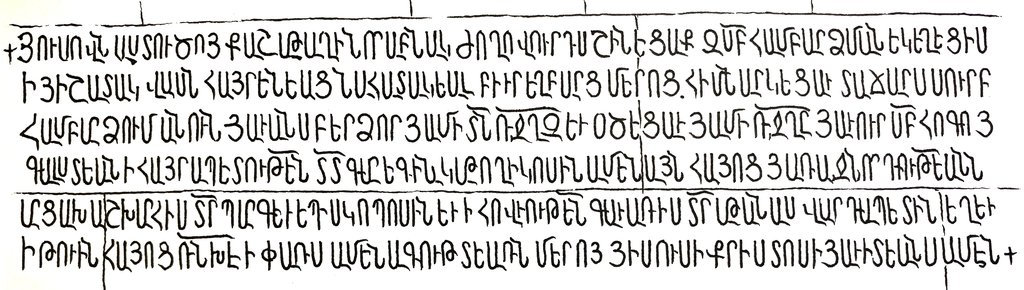 +ՅՈՒՍՈՎՆ ԱՍՏՈՒԾՈՅ ՔԱՇԱԹԱՂԻՆ ԲՆԱԿ ԺՈՂՈՎՈՒՐԴՍ ՇԻՆԵՑԱՔ ԶՍԲ ՀԱՄԲԱՐՁՄԱՆ ԵԿԵՂԵՑԻՍ
Ի ՅԻՇԱՏԱԿ ՎԱՍՆ ՀԱՅՐԵՆԵԱՑ ՆԱՀԱՏԱԿԵԱԼ ԵՂԲԱՐՑ ՄԵՐՈՑ. ՀԻՄՆԱՐԿԵՑԱՒ ՏԱՃԱՐՍ ՍՈՒՐԲ
ՀԱՄԲԱՐՁՈՒՄԱՆՈՒՆ ՅԱՒԱՆՍ ԲԵՐՁՈՐ ՅԱՄԻ ՏՆ ՌՋՂԶ ԵՒ ՕԾԵՑԱՒ ՅԱՄԻ ՌՋՂԸ ՅԱՒՈՒՐ ՍԲ ՀՈԳՈՅ
ԳԱՍՏԵԱՆ Ի ՀԱՅՐԱՊԵՏՈՒԹԵՆ ՏՏ ԳԱՐԵԳԻՆ ԿԱԹՈՂԻԿՈՍԻՆ ԱՄԵՆԱՅՆ ՀԱՅՈՑ ՅԱՌԱՋՆՈՐԴՈՒԹԵԱՆՆ
ԱՐՑԱԽԱ ԱՇԽԱՐՀԻՍ ՏՐ ՊԱՐԳԵՒ ԵՊԻՍԿՈՊՈՍԻՆ ԵՒ Ի ՀՈՎՈՒՈՒԹԵՆ ԳԱՒԱՌԻՍ ՏՐ ԱԹԱՆԱՍ ՎԱՐԴԱՊԵՏԻՆ ԵՂԵՒ
Ի ԹՈՒԻՆ ՀԱՅՈՑ ՌՆԽԷ Ի ՓԱՌՍ ԱՄԵՆԱԳՈՒԹ ՏԵԱՌՆ ՄԵՐՈՅ ՅԻՍՈՒՍԻ ՔՐԻՍՏՈՍԻ ՅԱՒԻՏԵԱՆՍ ԱՄԷՆ+